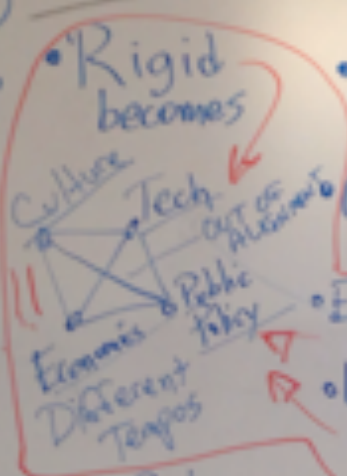 Rigid
becomes
Culture
Tech
OUT OF
ALIGNMENT
Public
Policy
Economics
Different
Tempos